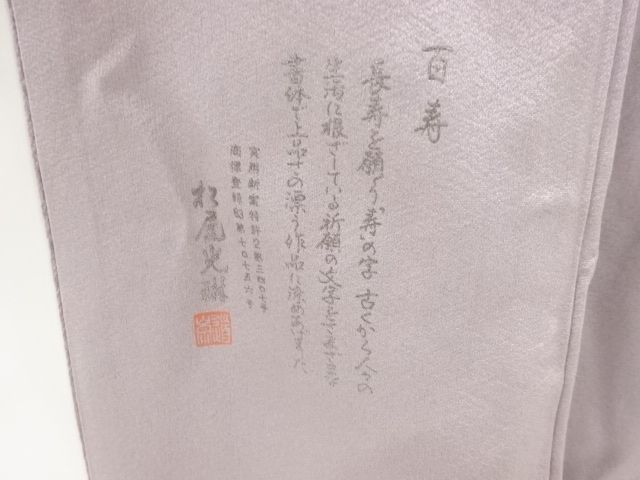 百寿
長寿を願う「寿」の字 古くから人々の
生活に根ざしている祈願の文字を
書体で上品さの漂う作品に染めあげました
実用新案特許公第三四〇七号
商標登録第七〇七五六号
松尾光琳